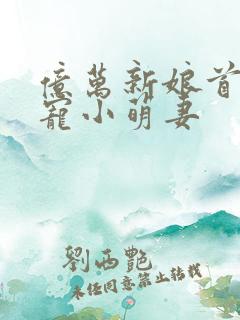 億萬新娘首
寵小萌妻
劉西艷
未經同意禁止轉載